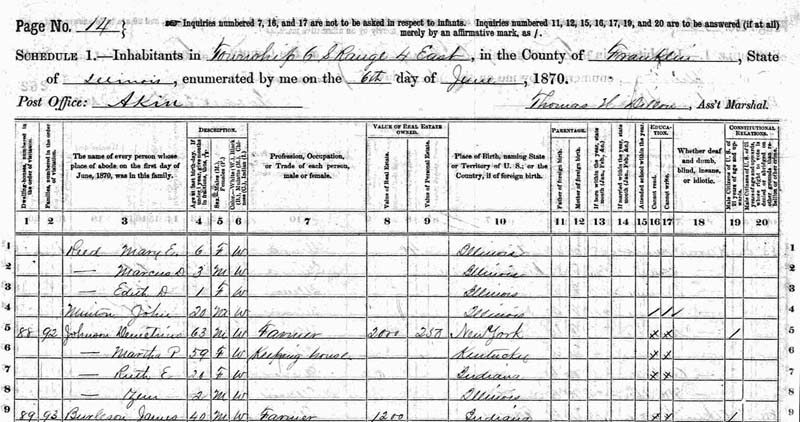 Page No. 14 Inquiries numbered 7, 16, and 17 are not to be asked in respect to infants. Inquiries numbered 11, 12, 15, 16, 17, 19, and 20 are to be answered (if at all)
merely by an affirmative mark, as /.
SCHEDULE 1.—Inhabitants in Township 6 S Range 4 East, in the County of Franklin, State
of Illinois, enumerated by me on the 6th day of June, 1870.
Post Office: Akin Thomas H Ass't Marshal.
Dwelling-houses, numbered in the order of visitation.
Families, numbered in the order of visitation.
The name of every person whose place of abode on the first day of June, 1870, was in this family.
DESCRIPTION.
Profession, Occupation, or Trade of each person, male or female.
VALUE OF REAL ESTATE OWNED.
Value of Real Estate.
Value of Personal Estate.
Place of Birth, naming State or Territory of U. S.; or the Country, if of foreign birth.
PARENTAGE.
Father of foreign birth.
Mother of foreign birth.
If born within the year, state month (Jan., Feb., &c.)
If married within the year, state month (Jan., Feb., &c.)
EDUCATION.
Attended school within the year.
Cannot read.
Cannot write.
Whether deaf and dumb, blind, insane, or idiotic.
CONSTITUTIONAL RELATIONS.
1 2 3 4 5 6 7 8 9 10 11 12 13 14 15 16 17 18 19 20
1 Reed Mary E. 6 F W Illinois
2 — Marcus D 3 M W Illinois
3 — Edith D 1 F W Illinois
4 Minton John 20 M W Illinois / / /
5 88 92 Johnson Demetrius 63 M W Farmer 2000 250 New York x x 1
6 — Martha P 59 F W Keeping house. Kentucky x x
7 — Ruth E. 20 F W Indiana x x
8 — 2 M W Illinois
9 89 93 Burleson James 40 M W Farmer 1200 Indiana x x 1